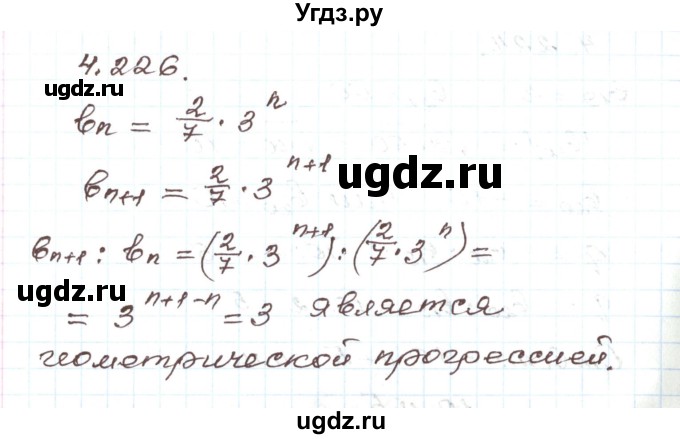 Угдз.ру
4.226.
ugdz.ru
bₙ = 2/7 · 3ⁿ
ugdz.ru
bₙ₊₁ = 2/7 · 3ⁿ⁺¹
bₙ₊₁ : bₙ = (2/7 · 3ⁿ⁺¹) : (2/7 · 3ⁿ) =
ugdz.ru
= 3ⁿ⁺¹⁻ⁿ = 3 является
геометрической прогрессией.
ugdz.ru
ugdz.ru